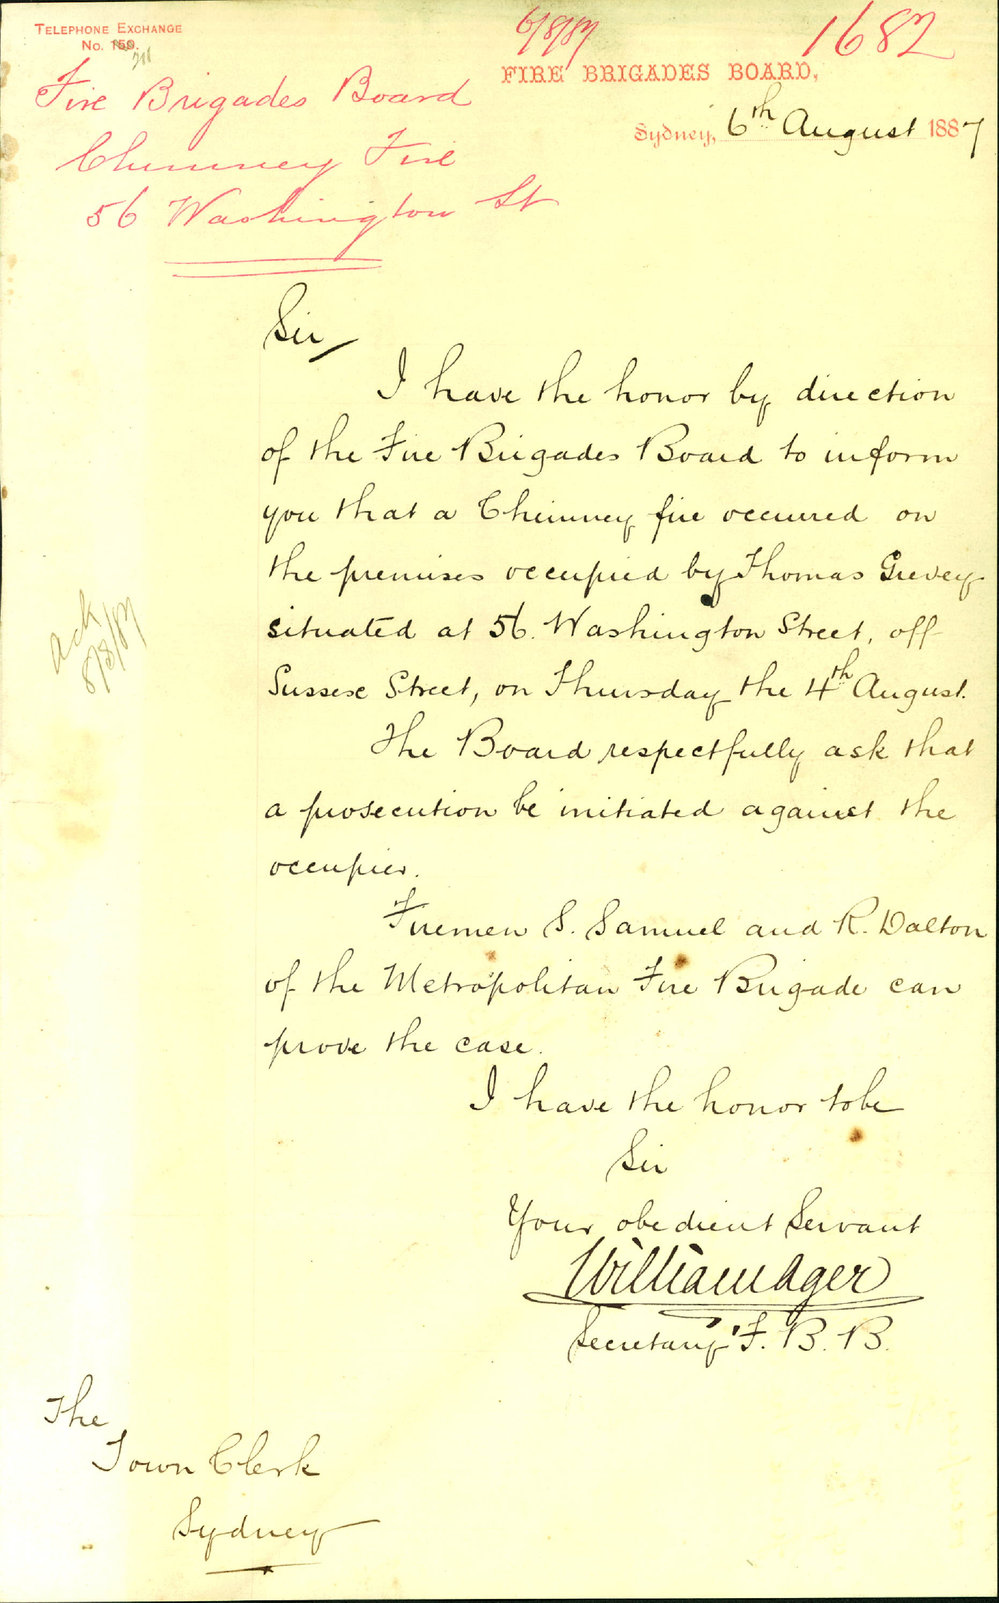 Telephone Exchange
No. 150.
6/8/87
1682
FIRE BRIGADES BOARD,
Sydney, 6th August 1887
Fire Brigades Board
Chimney Fire
56 Washington St
Sir
I have the honor by direction
of the Fire Brigades Board to inform
you that a Chimney fire occurred on
the premises occupied by Thomas Grevey
situated at 56. Washington Street, off
Sussex Street, on Thursday the 4th August.
The Board respectfully ask that
a prosecution be initiated against the
occupier.
Firemen S. Samuel and R. Dalton
of the Metropolitan Fire Brigade can
prove the case.
I have the honor to be
Sir
Your obedient Servant
William Ager
Secretary F. B. B.
ack
8/8/87
The
Town Clerk
Sydney